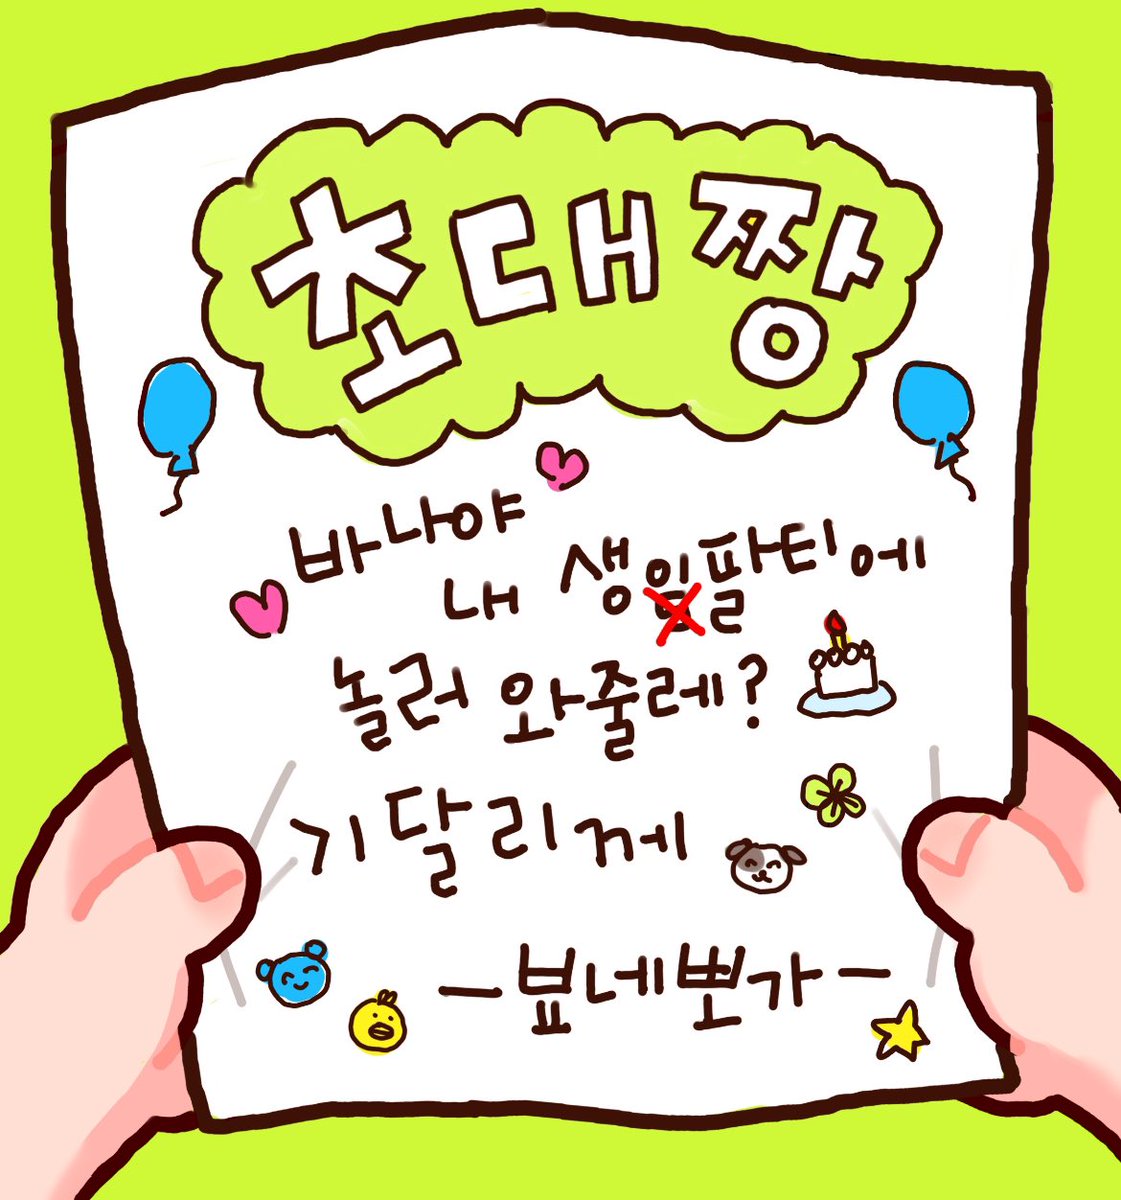 초대짱
바나야
내 생임팔티에
놀러 와줄레?
기달리께
-븊네뽀가-